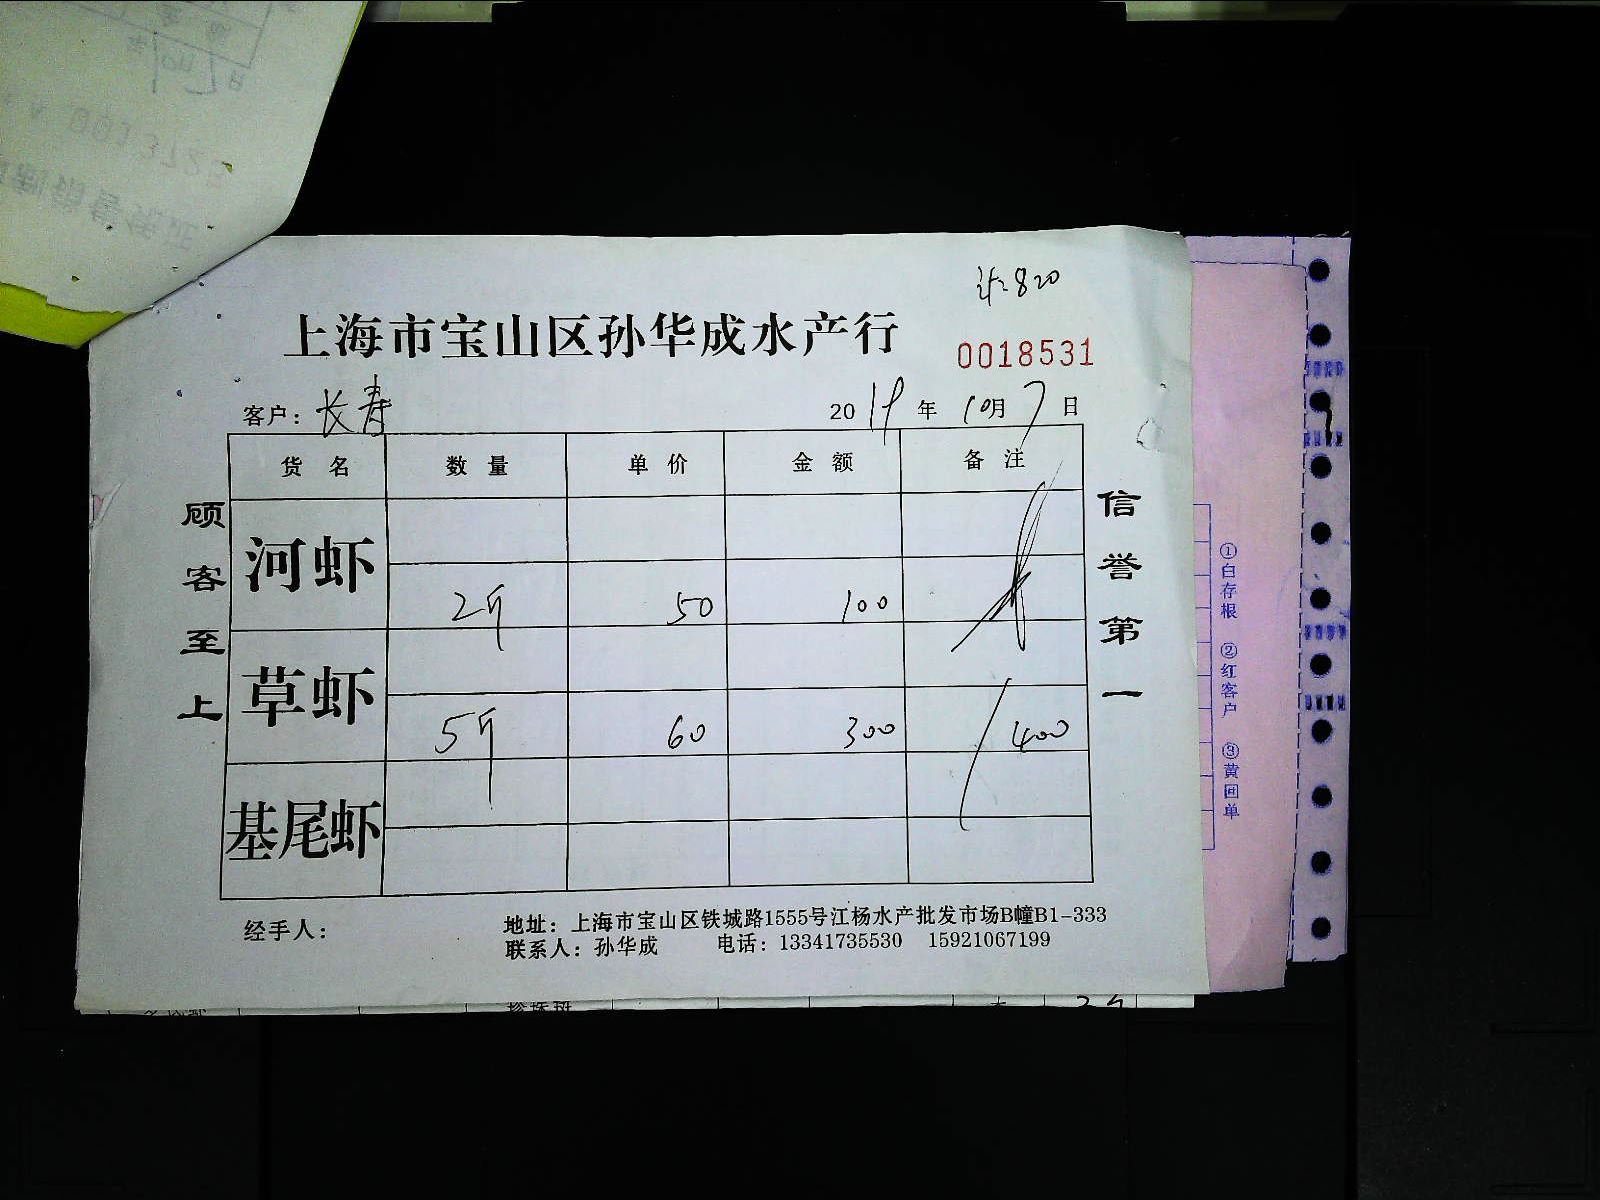 计:820
上海市宝山区孙华成水产行
0018531
客户: 长寿 2019年10月7日
货名 数量 单价 金额 备注
河虾 2斤 50 100
草虾 5斤 60 300 400
基尾虾
顾客至上
信誉第一
经手人:
地址: 上海市宝山区铁城路1555号江杨水产批发市场B幢B1-333
联系人: 孙华成 电话: 13341735530 15921067199
①白存根 ②红客户 ③黄回单